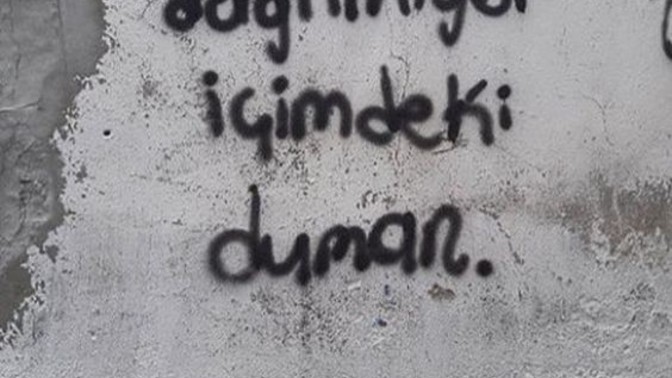 içimdeki
duman.